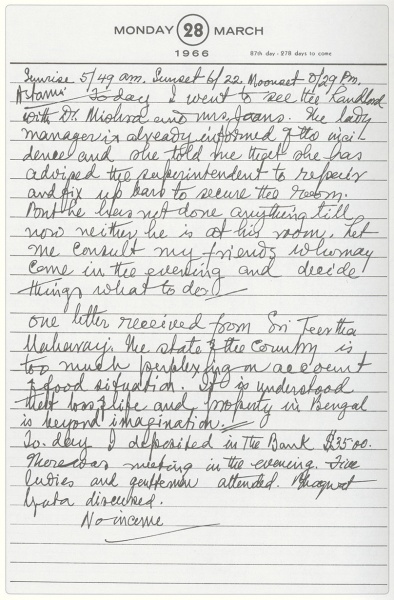 MONDAY 28 MARCH
1966
87th day - 278 days to come
Sunrise 5/49 am. Sunset 6/22 Moonset 0/29 Pm.
Astami Today I went to see the Landlord
with Dr. Mishra and Mrs. Joans. The lady
manager is already informed of the inci-
dence and she told me that she has
advised the superintendent to repair
and fix up bars to secure the room.
But he has not done anything till
now neither he is at his room. Let
me consult my friends who may
come in the evening and decide
things what to do.
One letter received from Sri Teertha
Maharaj. The state of the Country is
too much perplexing on account
of food situation. It is understood
that loss of life and property in Bengal
is beyond imagination.
To-day I deposited in the Bank $35.00.
There was meeting in the evening. Five
ladies and gentlemen attended. Bhagwat
Gita discussed.
No income